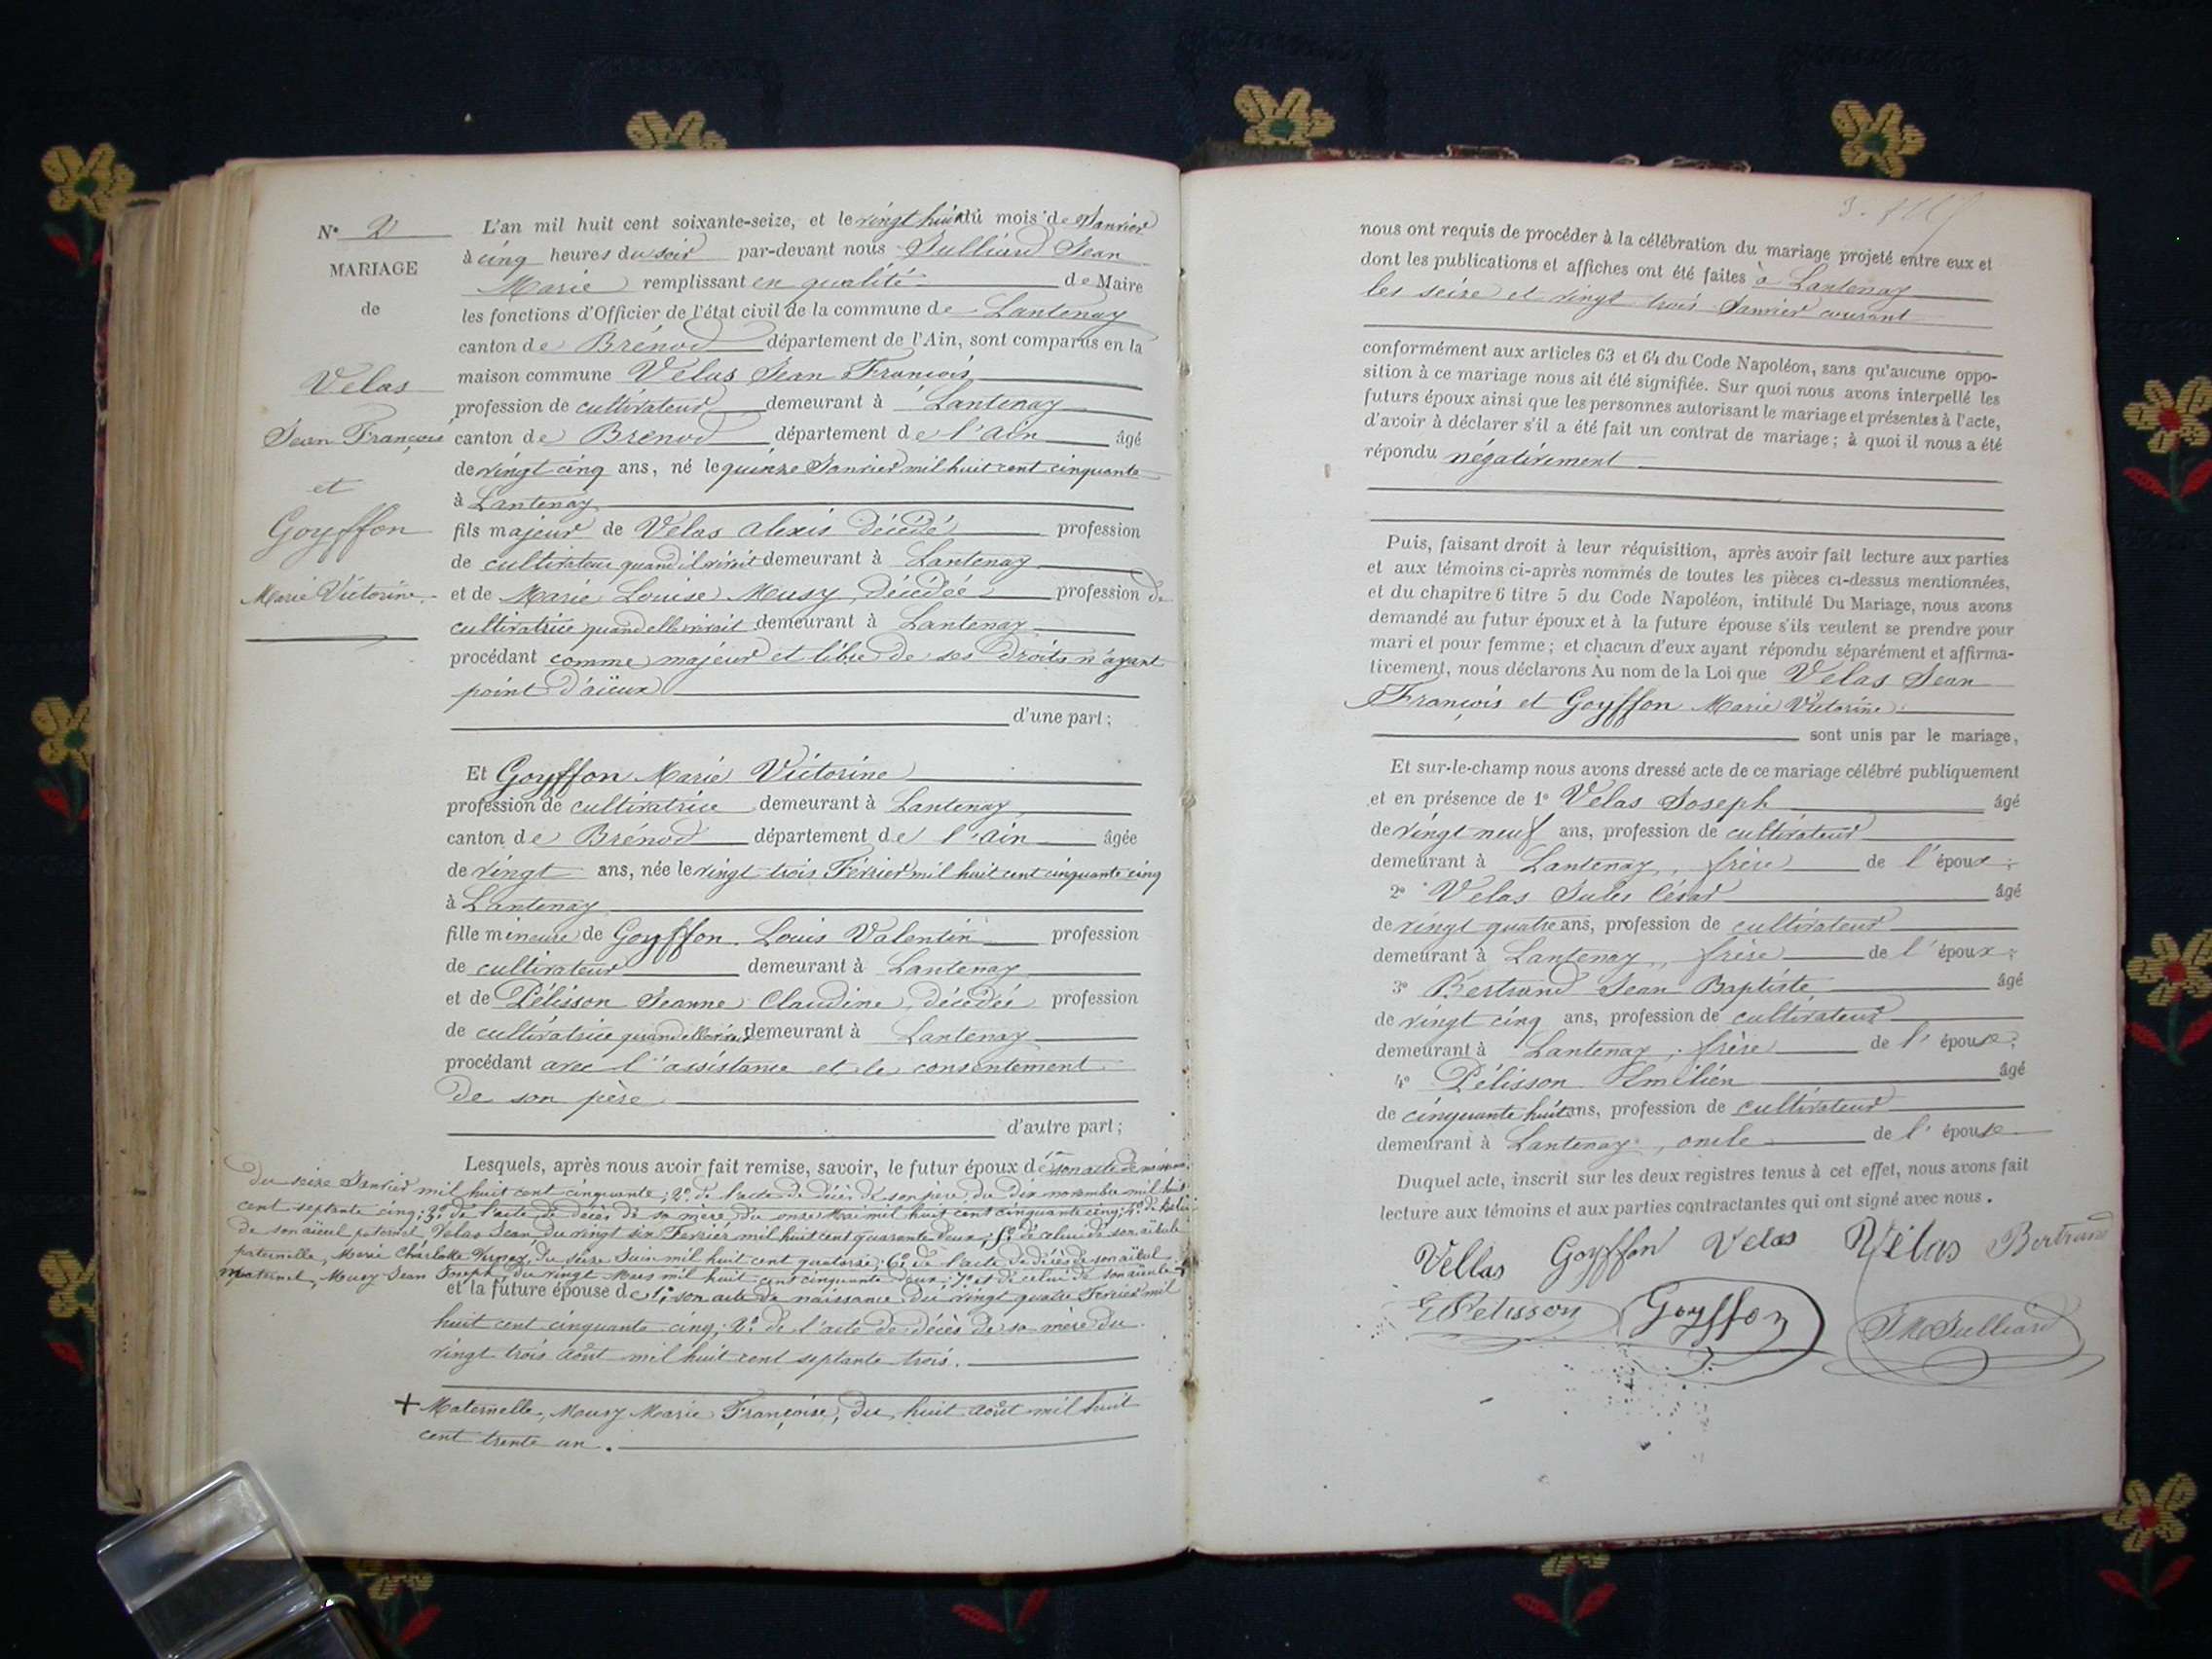 N° 2
MARIAGE
de
Velas
Jean François
et
Goyffon
Marie Victorine.
L'an mil huit cent soixante-seize, et le vingt huit du mois de Janvier
à cinq heures du soir par-devant nous Julliard Jean
Marie remplissant en qualité de Maire
les fonctions d'Officier de l'état civil de la commune de Lantenay
canton de Brénod département de l'Ain, sont comparus en la
maison commune Velas Jean François
profession de cultivateur demeurant à Lantenay
canton de Brénod département de l'Ain âgé
de vingt cinq ans, né le quinze Janvier mil huit cent cinquante
à Lantenay
fils majeur de Velas Alexis décédé profession
de cultivateur quand il vivait demeurant à Lantenay
et de Marie Louise Musy, décédée profession de
cultivatrice quand elle vivait demeurant à Lantenay
procédant comme majeur et libre de ses droits n'ayant
point d'aïeux
d'une part;
Et Goyffon Marie Victorine
profession de cultivatrice demeurant à Lantenay
canton de Brénod département de l'Ain âgée
de vingt ans, née le vingt trois Février mil huit cent cinquante cinq
à Lantenay
fille mineure de Goyffon Louis Valentin profession
de cultivateur demeurant à Lantenay
et de Pélisson Jeanne Claudine, décédée profession
de cultivatrice quand elle vivait demeurant à Lantenay
procédant avec l'assistance et le consentement
de son père
d'autre part;
Lesquels, après nous avoir fait remise, savoir, le futur époux de son acte de naissance
du seize Janvier mil huit cent cinquante; 2° de l'acte de décès de son père, du dix novembre mil huit
cent septante cinq; 3° de l'acte de décès de sa mère, du onze Mai mil huit cent cinquante cinq; 4° de
de son aïeul paternel Velas Jean du vingt six Février mil huit cent quarante deux; 5° de celui de son aïeule
paternelle, Marie Charlotte du seize Juin mil huit cent quatorze; 6° de l'acte de décès de son aïeul
maternel, Musy Jean Joseph, du vingt Mars mil huit cent cinquante deux; 7° et de celui de son aïeule +
et la future épouse de 1° son acte de naissance du vingt quatre Février mil
huit cent cinquante cinq; 2° de l'acte de décès de sa mère du
vingt trois août mil huit cent septante trois.
+ Maternelle, Musy Marie Françoise, du huit août mil huit
cent trente un.
nous ont requis de procéder à la célébration du mariage projeté entre eux et
dont les publications et affiches ont été faites à Lantenay
les seize et vingt trois Janvier courant
conformément aux articles 63 et 64 du Code Napoléon, sans qu'aucune oppo-
sition à ce mariage nous ait été signifiée. Sur quoi nous avons interpellé les
futurs époux ainsi que les personnes autorisant le mariage et présentes à l'acte,
d'avoir à déclarer s'il a été fait un contrat de mariage; à quoi il nous a été
répondu négativement
Puis, faisant droit à leur réquisition, après avoir fait lecture aux parties
et aux témoins ci-après nommés de toutes les pièces ci-dessus mentionnées,
et du chapitre 6 titre 5 du Code Napoléon, intitulé Du Mariage, nous avons
demandé au futur époux et à la future épouse s'ils veulent se prendre pour
mari et pour femme; et chacun d'eux ayant répondu séparément et affirma-
tivement, nous déclarons Au nom de la Loi que Velas Jean
François et Goyffon Marie Victorine
sont unis par le mariage,
Et sur-le-champ nous avons dressé acte de ce mariage célébré publiquement
et en présence de 1° Velas Joseph âgé
de vingt neuf ans, profession de cultivateur
demeurant à Lantenay, frère de l'époux;
2° Velas Jules César âgé
de vingt quatre ans, profession de cultivateur
demeurant à Lantenay, frère de l'époux;
3° Bertrand Jean Baptiste âgé
de vingt cinq ans, profession de cultivateur
demeurant à Lantenay, frère de l'épouse;
4° Pélisson Emilien âgé
de cinquante huit ans, profession de cultivateur
demeurant à Lantenay, oncle de l'épouse
Duquel acte, inscrit sur les deux registres tenus à cet effet, nous avons fait
lecture aux témoins et aux parties contractantes qui ont signé avec nous.
Vellas Goyffon Velas Vélas Bertrand
E Pelisson Goyffon J M Julliard